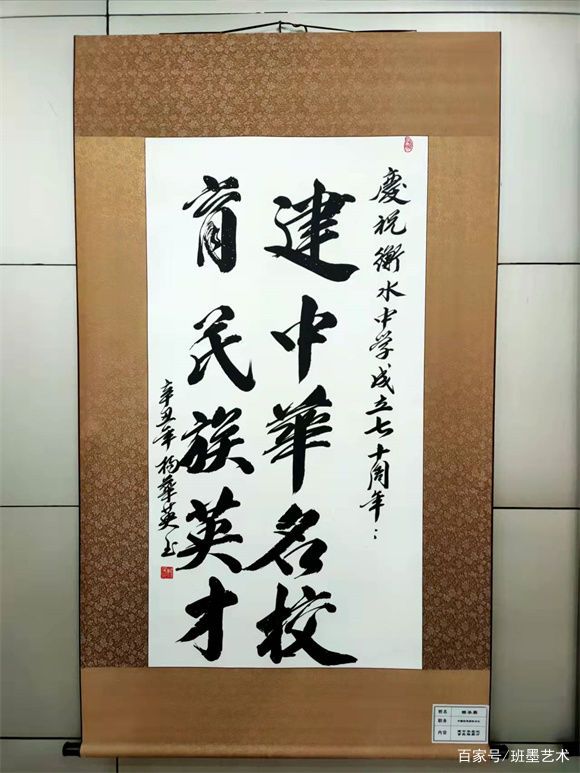 慶祝衡水中学成立七十周年：
建中華名校
育民族英才
辛丑年杨華英书
姓名
职务
内容
百家号/班墨艺术